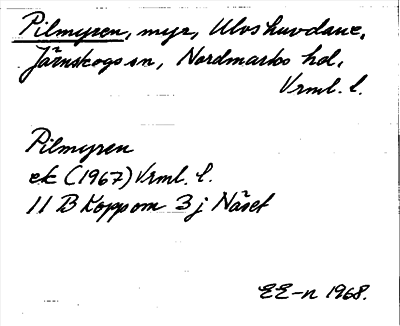 Pilmyren, myr, Ulvshuvdane,
Järnskogs sn, Nordmarks hd,
Vrml. l.
Pilmyren
ek (1967) Vrml. l.
11 B Koppom 3 j Näset
EE-n 1968.